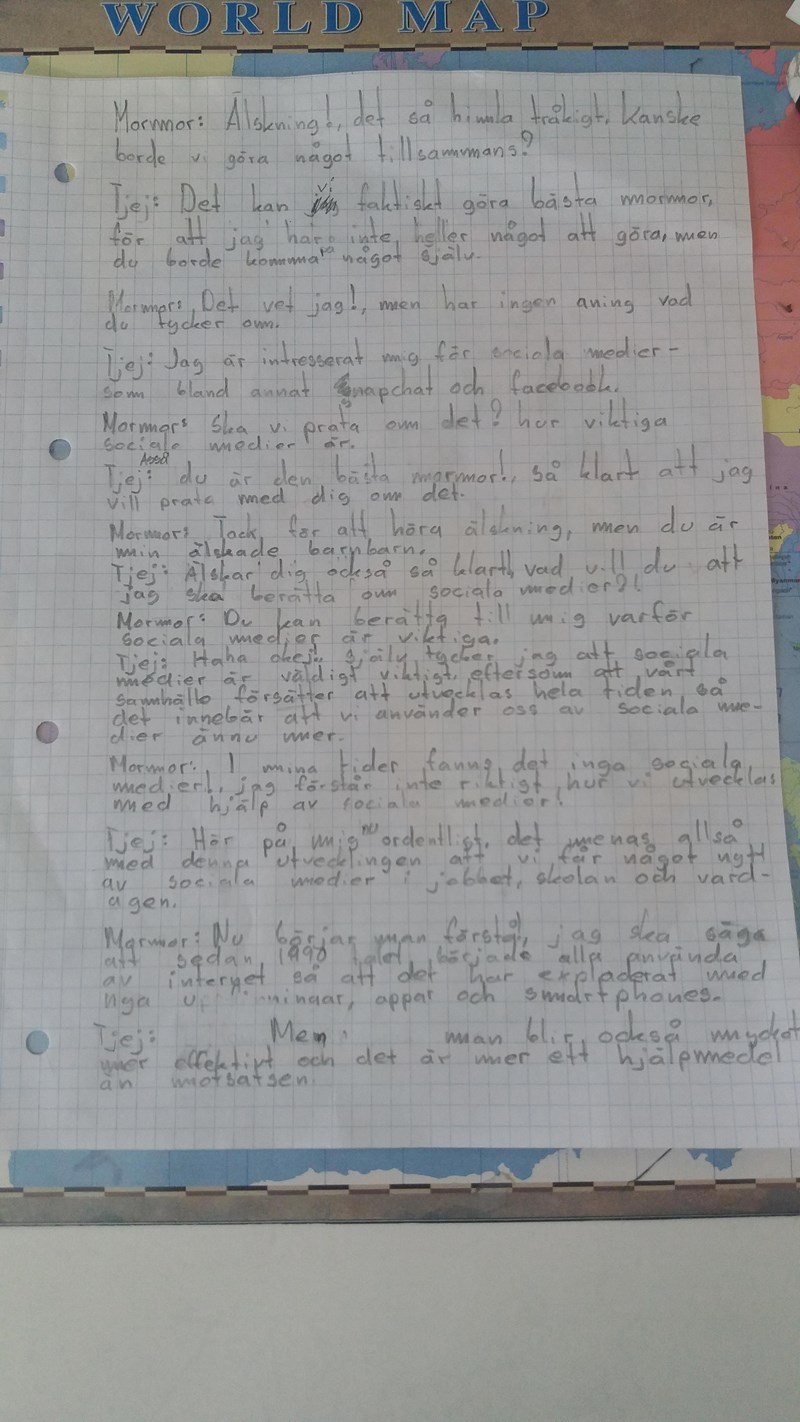 WORLD MAP
Mormor: Älskning!, det så himla tråkigt, kanske
borde vi göra något tillsammans?
Tjej: Det kan vi faktiskt göra bästa mormor,
för att jag har inte heller något att göra, men
du borde komma på något själv.
Mormor: Det vet jag!, men har ingen aning vad
du tycker om.
Tjej: Jag är intresserat mig för sociala medier-
som bland annat Snapchat och facebook.
Mormor: Ska vi prata om det? hur viktiga
sociala medier är.
Tjej: Asså du är den bästa mormor!, så klart att jag
vill prata med dig om det.
Mormor: Tack, för att höra älskning, men du är
min älskade barnbarn.
Tjej: Älskar dig också så klart!, vad vill du att
jag ska berätta om sociala medier?!
Mormor: Du kan berätta till mig varför
sociala medier är viktiga.
Tjej: Haha okej, själv tycker jag att sociala
medier är väldigt viktigt, eftersom att vårt
samhälle försätter att utvecklas hela tiden, så
det innebär att vi använder oss av sociala me-
dier ännu mer.
Mormor: I mina tider fanns det inga sociala
medier!, jag förstår inte riktigt hur vi utvecklas
med hjälp av sociala medier!
Tjej: Hör på mig nu ordentligt, det menas allså
med denna utvecklingen att vi får något nytt
av sociala medier i jobbet, skolan och vard-
agen.
Mormor: Nu börjar man förstå!, jag ska säga
att sedan 1990 talet, började alla använda
av internet så att det har exploderat med
appar och smartphones.
Tjej: Men man blir också mycket
mer effektivt och det är mer ett hjälpmedel
än motsatsen.